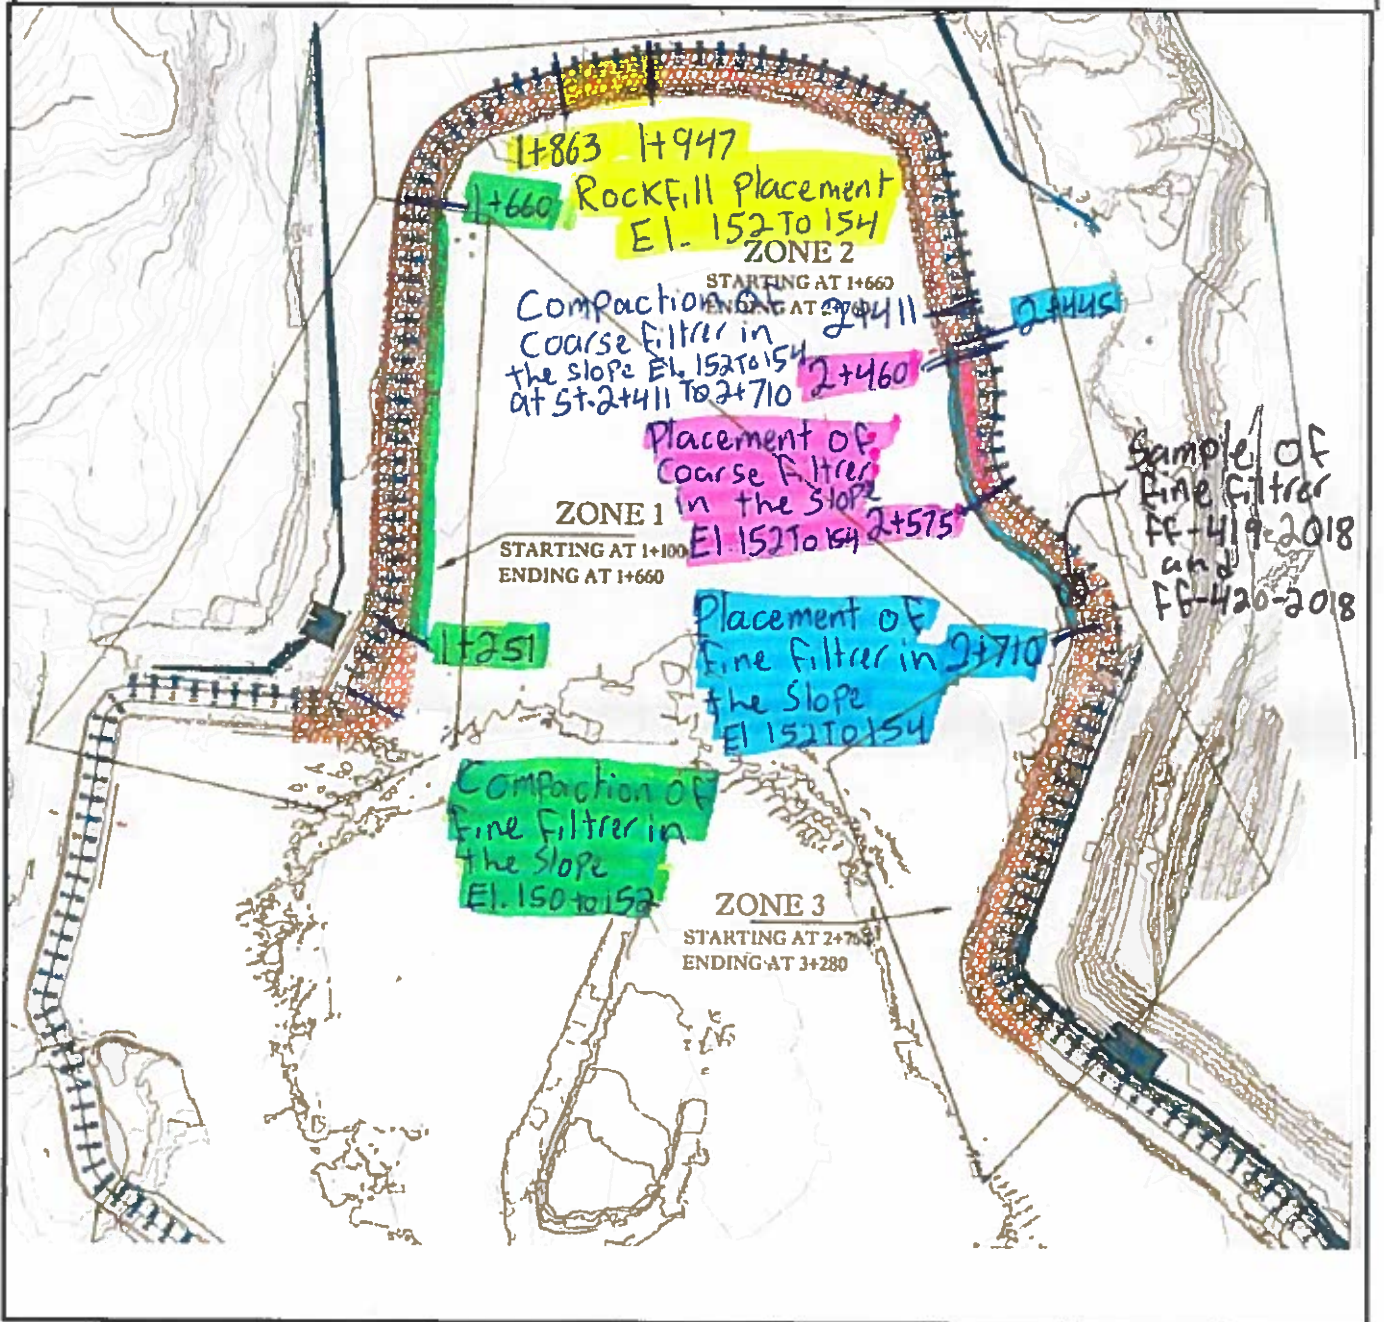 1+863 1+947
1+660
Rockfill Placement
El. 152 To 154
ZONE 2
STARTING AT 1+660
ENDING AT
Compaction of
Coarse Filtrer in
the slope El. 152 To 154
at St. 2+411 To 2+710
2+411
2+445
2+460
Placement of
Coarse Filtrer
in the slope
El. 152 To 154
2+575
Sample of
fine filtrer
FF-419-2018
and
FF-420-2018
ZONE 1
STARTING AT 1+100
ENDING AT 1+660
1+251
Placement of
Fine Filtrer in
the Slope
El 152 To 154
2+710
Compaction of
Fine Filtrer in
the Slope
El. 150 to 152
ZONE 3
STARTING AT
ENDING AT 3+280